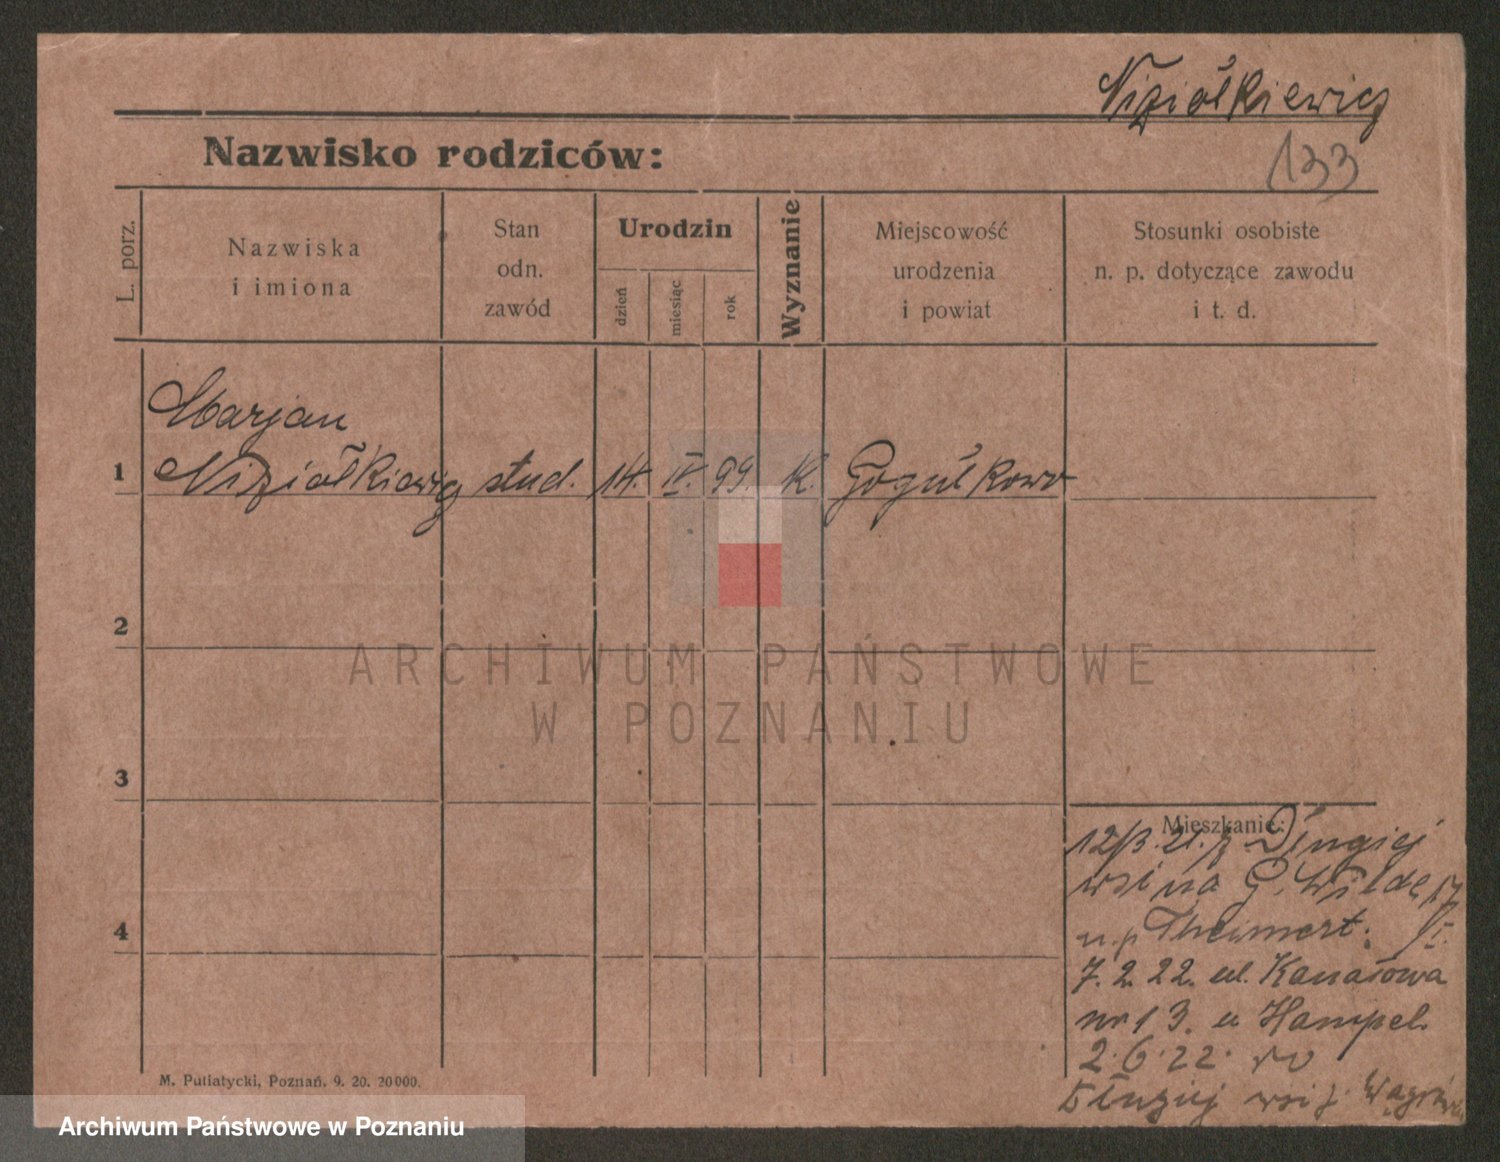 Niziołkiewicz
133
Nazwisko rodziców:
L. porz.
Nazwiska
i imiona
Stan
odn.
zawód
Urodzin
dzień
miesiąc
rok
Wyznanie
Miejscowość
urodzenia
i powiat
Stosunki osobiste
n. p. dotyczące zawodu
i t. d.
Marjan
1 Niziołkiewicz stud. 14. IV. 99. K. Gogułkowo
2
ARCHIWUM PAŃSTWOWE
W POZNANIU
3
Mieszkanie:
12/3.21. z Długiej
wsi na G. Wildę
n.p. I.
4
7.2.22. ul. Kanałowa
nr 13. u Hampel.
2.6.22. do
Długiej wsi p.
M. Putiatycki, Poznań. 9. 20. 20000.
Archiwum Państwowe w Poznaniu